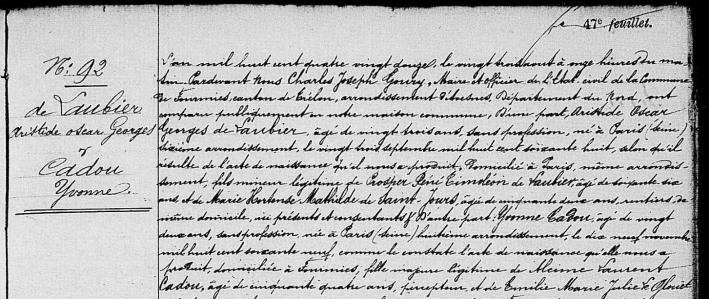 47e feuillet.
No: 92
de Laubier
Aristide oscar Georges
&
Cadou
Yvonne.
L'an mil huit cent quatre vingt douze, le vingt trois aout à onze heures du ma
tin. Pardevant Nous Charles Joseph Goury, Maire et officier de l'Etat civil de la Commune
de Fourmies, canton de Trélon, arrondissement d'Avesnes, Département du Nord, ont
comparu publiquement en notre maison commune, D'une part, Aristide Oscar
Georges de Laubier, âgé de vingt trois ans, sans profession, né à Paris (Seine)
sixième arrondissement, le vingt trois septembre mil huit cent soixante huit, selon qu'il
résulte de l'acte de naissance qu'il nous a produit, Domicilié à Paris, même arrondis-
sement, fils mineur légitime de Prosper Réné Timoléon de Laubier, âgé de soixante six
ans et de Marie Hortense Mathilde de Saint-Jours, âgée de cinquante deux ans, rentiers, de
même domicile, ici présents et consentants & D'autre part: Yvonne Cadou, âgée de vingt
deux ans, sans profession, née à Paris (Seine) huitième arrondissement, le dix neuf novembre
mil huit cent soixante neuf, comme le constate l'acte de naissance qu'elle nous a
produit, domiciliée à Fourmies, fille majeure légitime de Alcime Laurent
Cadou, âgé de cinquante quatre ans, percepteur, et de Emilie Marie Julie